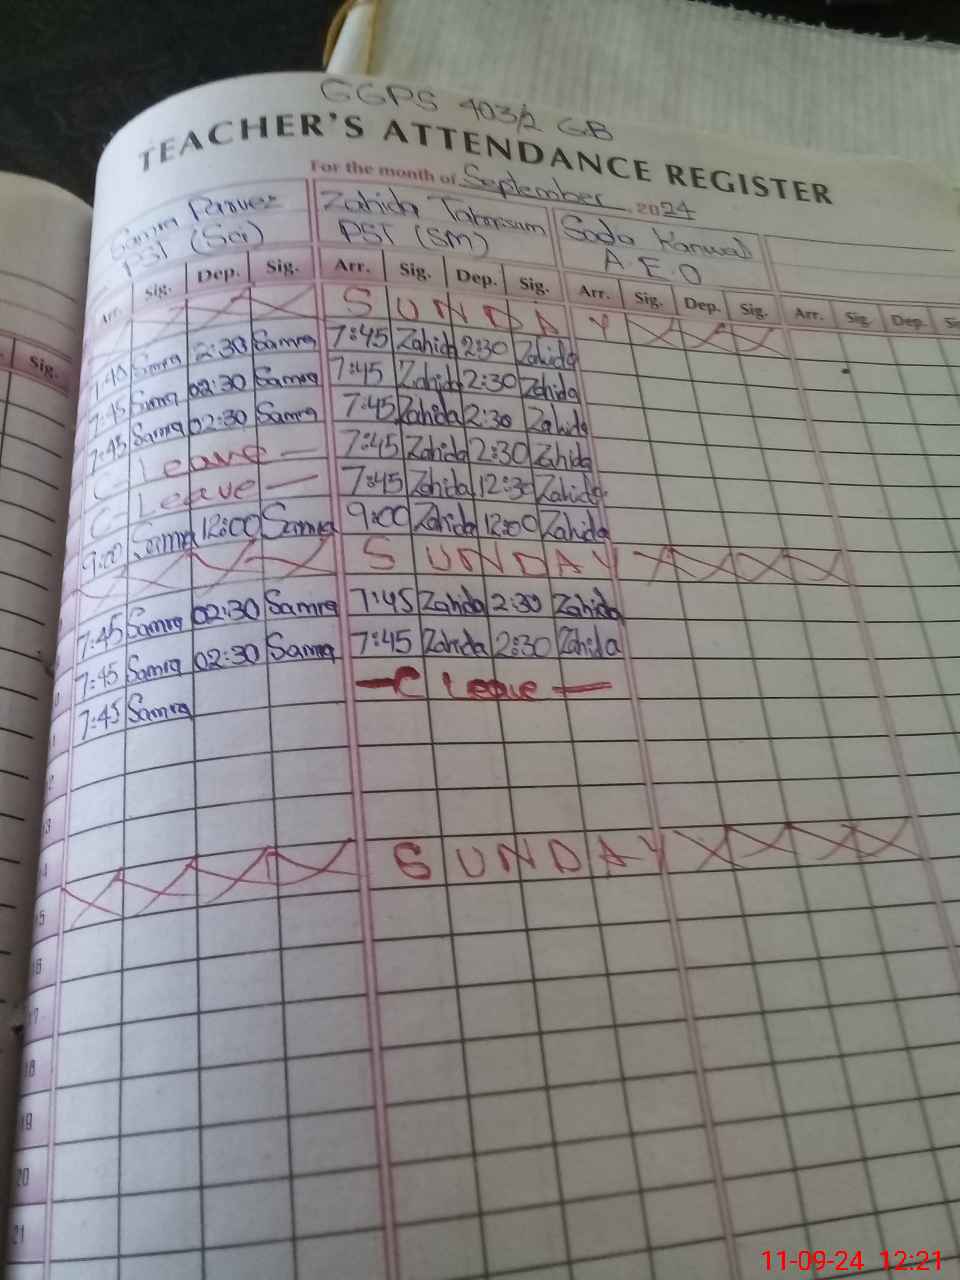 GGPS 403/2 GB
TEACHER'S ATTENDANCE REGISTER
For the month of September 2024
Samra Parvez Zahida Tabassum Sada Kanwal
PST (Sci) PST (SM) A.E.O
Arr. Sig. Dep. Sig. Arr. Sig. Dep. Sig. Arr. Sig. Dep. Sig. Arr. Sig. Dep.
SUNDAY
7:45 Samra 2:30 Samra 7:45 Zahida 2:30 Zahida
7:45 Samra 02:30 Samra 7:45 Zahida 2:30 Zahida
7:45 Samra 02:30 Samra 7:45 Zahida 2:30 Zahida
C- Leave — 7:45 Zahida 2:30 Zahida
C- Leave — 7:45 Zahida 12:30 Zahida
9:00 Samra 12:00 Samra 9:00 Zahida 12:00 Zahida
SUNDAY
7:45 Samra 02:30 Samra 7:45 Zahida 2:30 Zahida
7:45 Samra 02:30 Samra 7:45 Zahida 2:30 Zahida
7:45 Samra — C Leave —
SUNDAY
18
19
20
21
Sig.
11-09-24 12:21